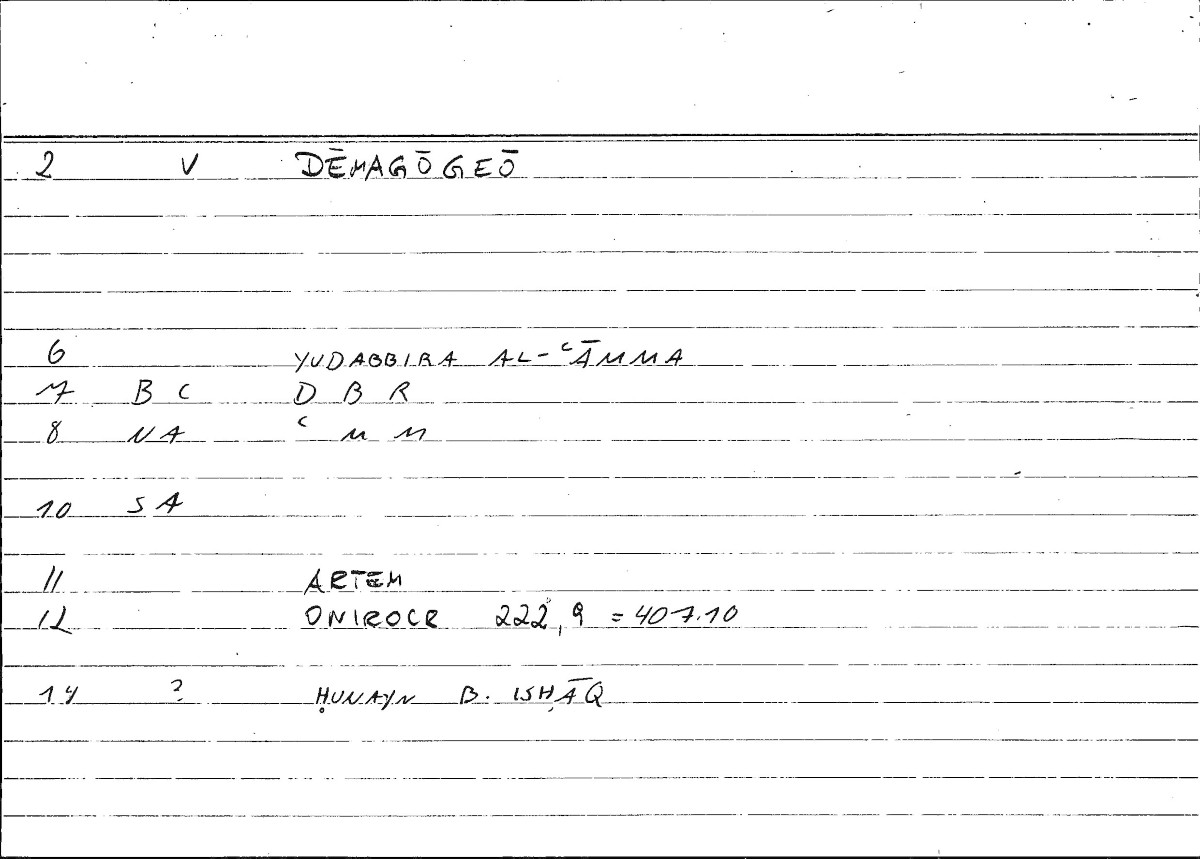 2 V DĒMAGŌGEŌ
6 YUDABBIRA AL-ʿĀMMA
7 B C D B R
8 NA ʿ M M
10 SA
11 ARTEM
12 ONIROCR 222,9 = 407.10
14 ? ḤUNAYN B. ISḤĀQ